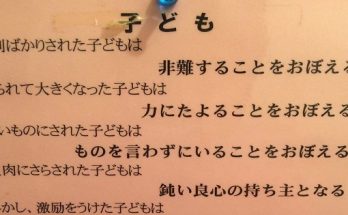 子ども
判ばかりされた子どもは
非難することをおぼえる
られて大きくなった子どもは
力にたよることをおぼえる
いものにされた子どもは
ものを言わずにいることをおぼえる
肉にさらされた子どもは
鈍い良心の持ち主となる
かし、激励をうけた子どもは